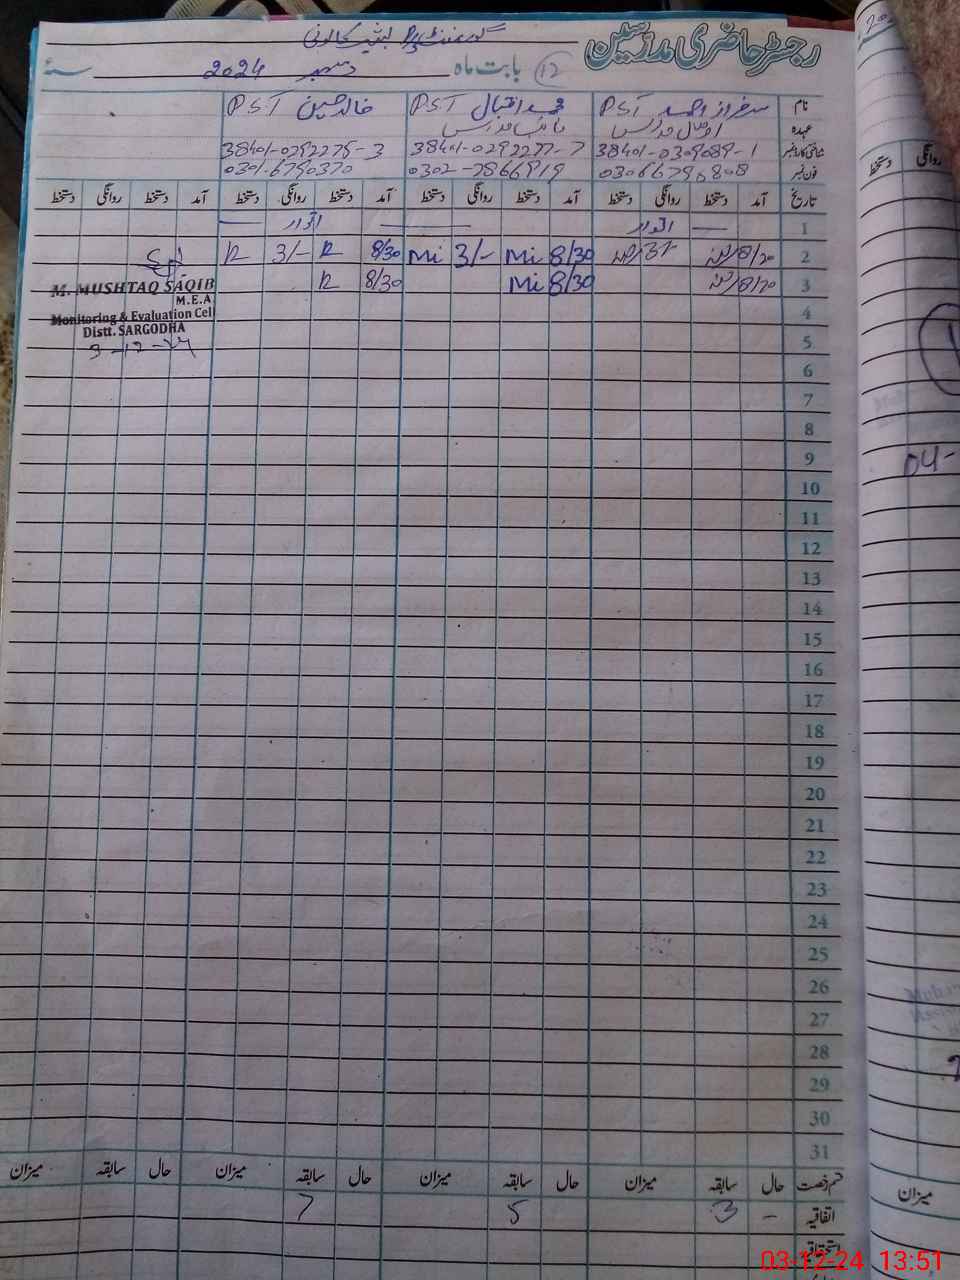 رجسٹر حاضری مدرسین
گورنمنٹ
بابت ماہ (12) دسمبر 2024 سنہ
نام سرفراز احمد PST محمد اقبال PST خالد حسین PST
عہدہ
شناختی کارڈ نمبر 38401-0309089-1 38401-0292277-7 38401-0292275-3
فون نمبر 03066798808 0302-7866919 0301-6790370
تاریخ آمد دستخط روانگی دستخط آمد دستخط روانگی دستخط آمد دستخط روانگی دستخط آمد دستخط روانگی دستخط
1 اتوار اتوار
2 8/30 8/30 Mi 3/- Mi 8/30 R 3/- R
3 8/30 8/30 Mi 8/30 R
M. MUSHTAQ SAQIB
M.E.A
Monitoring & Evaluation Cell
Distt. SARGODHA
3-12-24
4
5
6
7
8
9
10
11
12
13
14
15
16
17
18
19
20
21
22
23
24
25
26
27
28
29
30
31
قسم رخصت حال سابقہ میزان حال سابقہ میزان حال سابقہ میزان حال سابقہ میزان
اتفاقیہ - 3 5 7
استحقاقی
روانگی
دستخط
04-
میزان
03-12-24 13:51